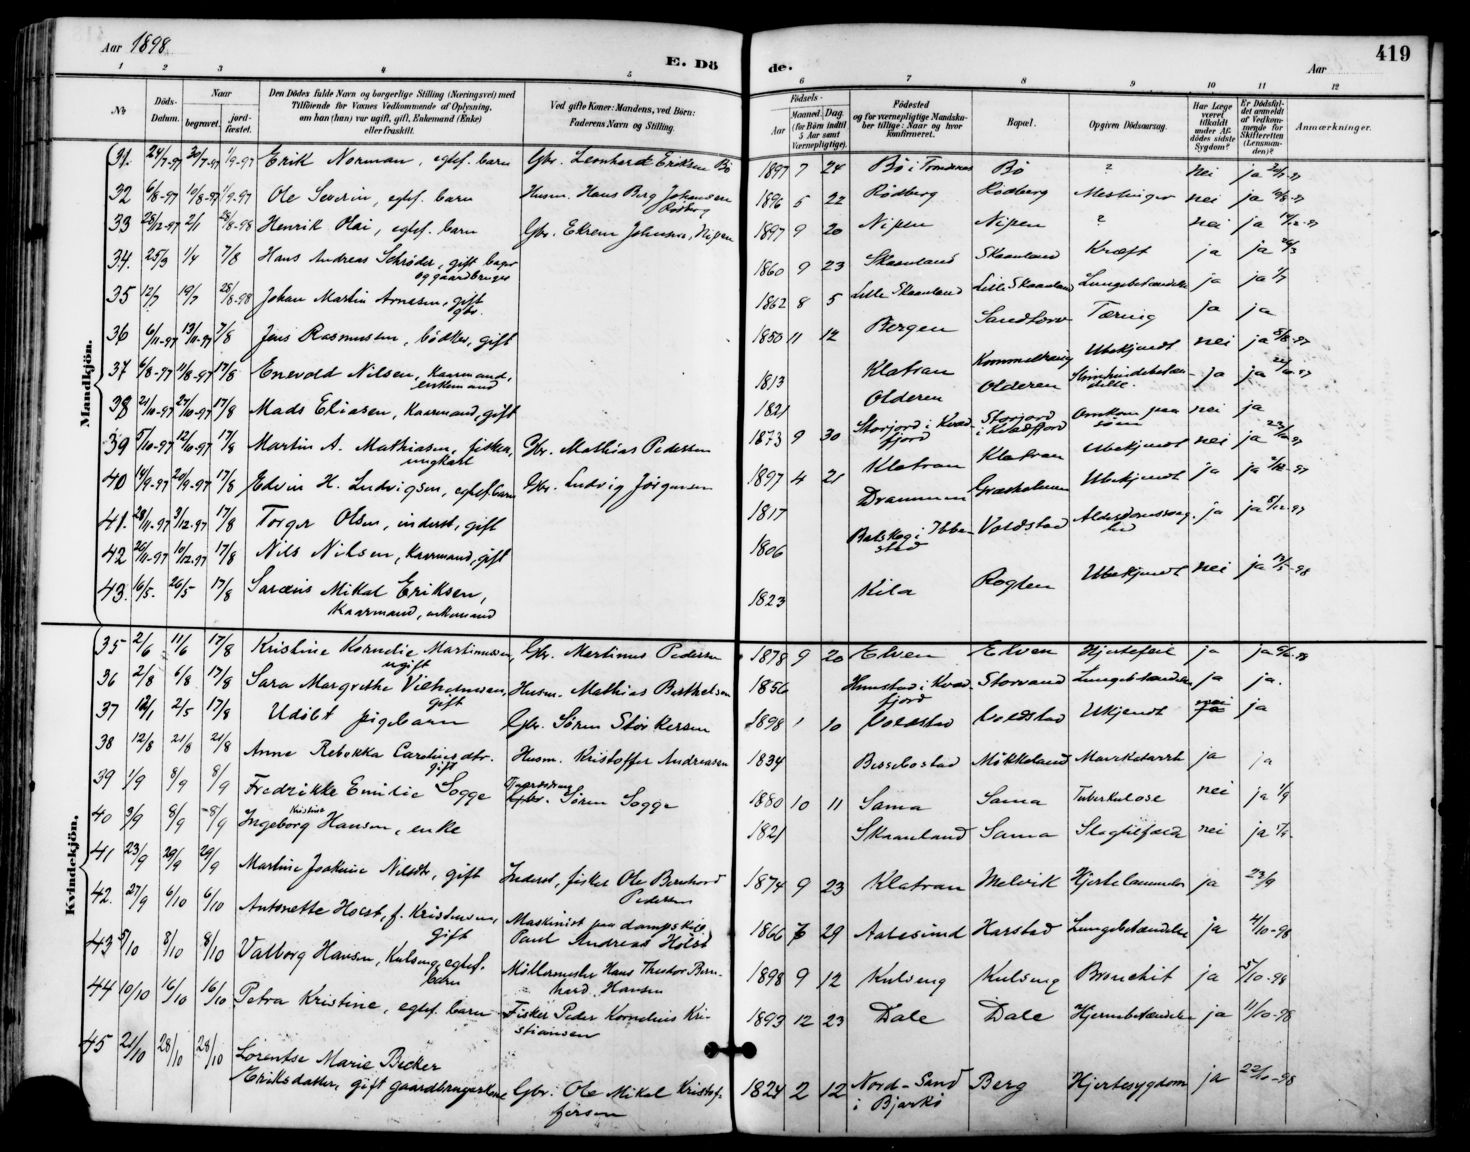 Aar 1898.
E. Dö
de.
Aar
419
1 2 3 4 5 6 7 8 9 10 11 12
No
Döds-Datum.
Naar
begravet.
jord-fæstet.
Den Dödes fulde Navn og borgerlige Stilling (Næringsvei) med
Tilföiende for Voxnes Vedkommende af Oplysning,
om han (hun) var ugift, gift, Enkemand (Enke)
eller fraskilt.
Ved gifte Koner: Mandens, ved Börn:
Faderens Navn og Stilling.
Födsels-
Aar
Maaned. Dag.
(for Börn indtil
5 Aar samt
Værnepligtige).
Födested
og for værnepligtige Mandska-
ber tillige: Naar og hvor
konfirmeret.
Bopæl.
Opgiven Dödsaarsag.
Har Læge
været
tilkaldt
under Af-
dödes sidste
Sygdom?
Er Dödsfal-
det anmeldt
af Vedkom-
mende for
Skifteretten
(Lensman-
den)?
Anmærkninger.
Mandkjön.
31. 24/7-97 30/7-97 1/9-97 Erik Norman, egtef. barn Gbr. Leonhard Eriksen Bö 1897 7 24 Bö i Trondenes Bö ? nei ja
32 6/8-97 10/8-97 1/9-97 Ole Severin, egtef. barn Husm. Hans Berg Johansen Rödberg 1896 5 22 Rödberg Rödberg Meslinger nei ja
33 28/12-97 2/1 28/8-98 Henrik Olai, egtef. barn Gbr. Ekrem Johnsen, Nipen 1897 9 20 Nipen Nipen ? nei ja
34. 25/3 1/4 7/8 Hans Andreas Schröder, gift bager og gaardbruger 1860 9 23 Skaanland Skaanland Kræft ja ja
35 12/7 19/7 28/8-98 Johan Martin Arnesen, gift gbr. 1862 8 5 Lille Skaanland Lille Skaanland Lungebetændelse ja ja
36 6/11-97 13/11-97 7/8 Jens Rasmussen, bödker, gift 1850 11 12 Bergen Sandtorv Tæring ja ja
37 6/8-97 11/8-97 17/8 Enevold Nilsen, Kaarmand, enkemand 1813 Klatran Ubekjendt nei ja
38 21/10-97 27/10-97 17/8 Mads Eliasen, Kaarmand, gift 1821 Olderen Olderen ja ja
39 5/10-97 12/10-97 17/8 Martin A. Mathiasen, fisker, ungkarl Gbr. Mathias Pedersen 1873 9 30 Storjord i Kvæd-fjord Storjord i Kvædfjord Omkom paa söen nei ja
40 14/9-97 20/9-97 17/8 Edvin H. Ludvigsen, egtef. barn Gbr. Ludvig Jörgensen 1897 4 21 Klatran Klatran Ubekjendt nei ja
41. 28/11-97 3/12-97 17/8 Torger Olsen, inderst, gift 1817 Drammen Græsholmen Ubekjendt ja ja
42 26/11-97 10/12-97 17/8 Nils Nilsen, Kaarmand, gift 1806 Ibbe-stad Voldstad ja ja
43. 16/5. 26/5 17/8 Mikal Eriksen, Kaarmand, enkemand 1823 Kila Roglen Ubekjendt nei ja
Kvindekjön.
35 2/6 11/6 17/8 Kristine Kornelie Martinussen, ugift Gbr. Martinus Pedersen 1878 9 20 Elven Elven Hjertefeil ja ja
36 2/8 6/8 17/8 Sara Margrethe Vilhelmsen, gift Husm. Mathias Berthelsen 1856 Hunstad i Kvæd-fjord Storvand Lungebetændelse ja ja.
37 12/1 2/5 17/8 Udöbt pigebarn Gbr. Sören Störkersen 1898 1 10 Voldstad Voldstad Ukjendt nei ja
38 12/8 21/8 21/8 Anne Rebekka Carolinsdtr. gift Husm. Kristoffer Andreasen 1834 Bessebostad Mökkeland Mavekatarrh ja ja
39 1/9 8/9 8/9 Fredrikke Emilie Sogge Gbr. Sören Sogge 1880 10 11 Sama Sama Tuberkulose nei ja 1/9
40 3/9 8/9 8/9 Ingeborg Kristine Hansen, enke 1821 Skaanland Sama Slagtilfælde nei ja
41 23/9 29/9 29/9 Martine Joakime Nilsdtr, gift Inderst, fisker Ole Bernhard Pedersen 1874 9 23 Klatran Melvik Hjertelammelse ja 23/9
42. 27/9 6/10 6/10 Antonette Holst, f. Kristensen, gift Maskinist paa dampskib Paul Andreas Holst 1866 29 Aalesund Harstad Lungebetændelse ja 4/10-98
43 5/10 8/10 8/10 Valborg Hansen, Kulseng, egtef. barn Möllermester Hans Theodor Bern-hard Hansen 1898 9 12 Kulseng Kulseng Bronchit ja 5/10-98
44 10/10 16/10 16/10 Petra Kristine, egtef. barn Fisker Peder Kornelius Kri-stiansen 1893 12 23 Dale Dale Hjernebetændelse ja 11/10-98
45 21/10 28/10 28/10 Lorentse Marie Becker Eriksdatter, gift gaardbrugerkone Gbr. Ole Mikal Kristof-fersen 1824 2 12 Nord-Sand i Bjarkö Berg Hjertesygdom ja 22/10-98